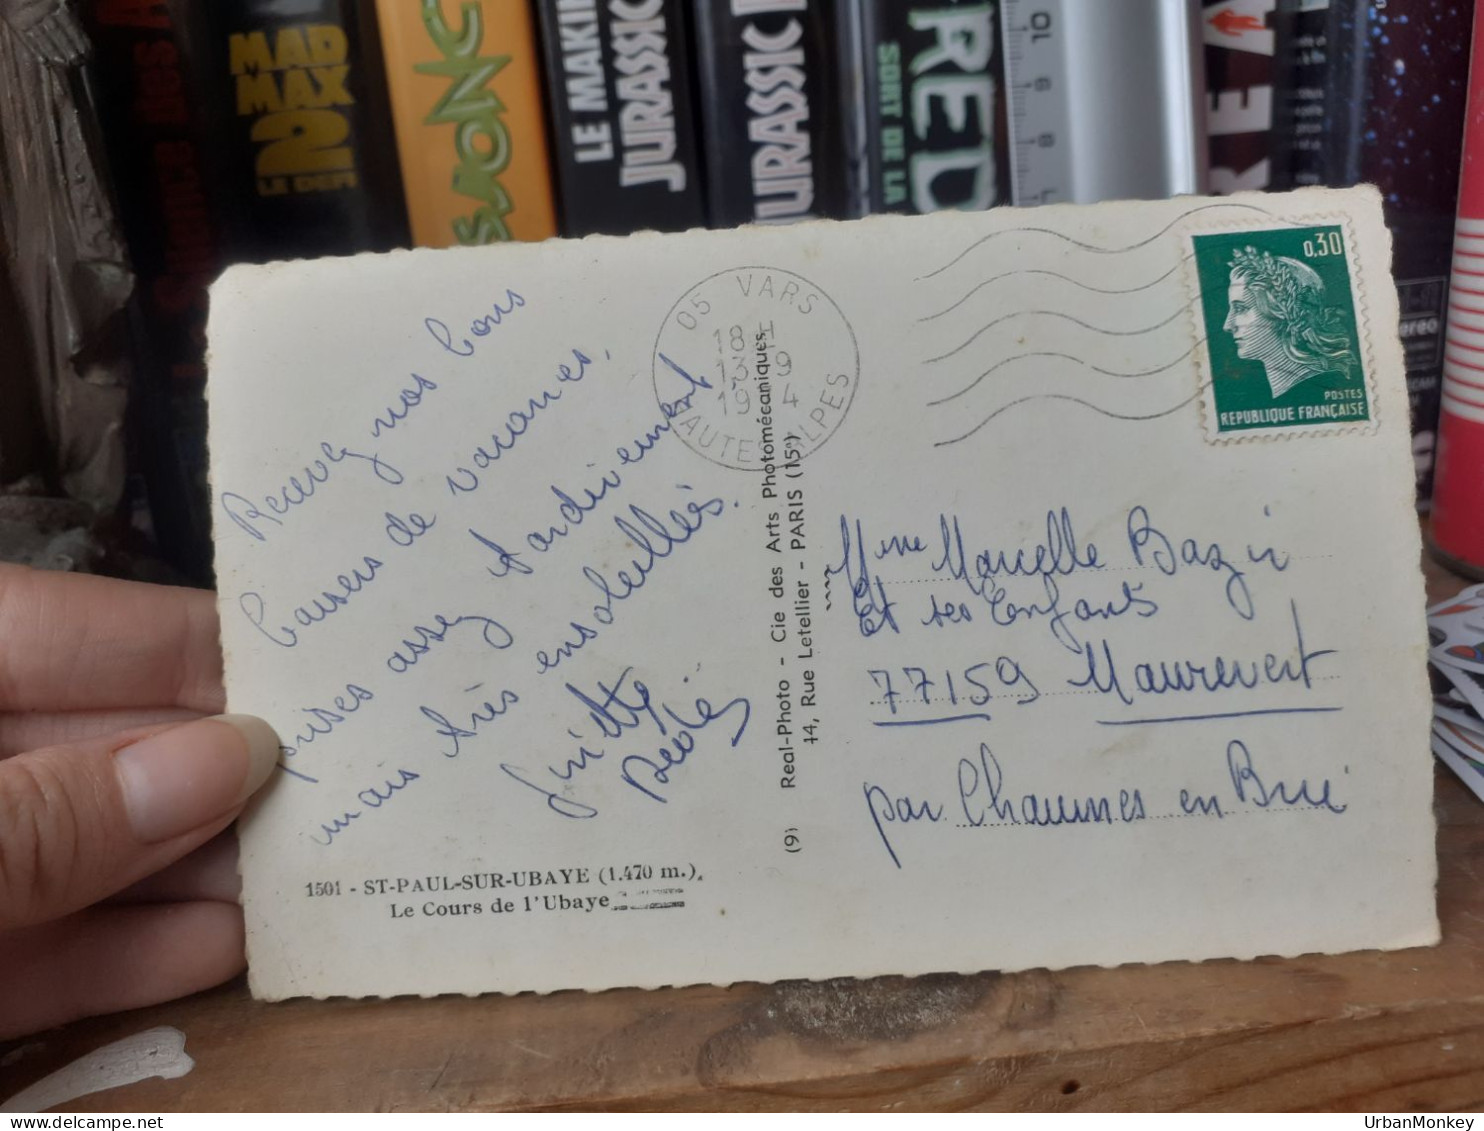 MAD
MAX
2
LE MAKIN
JURASSIC
JURASSIC
SORT DE LA
RED
10
9
8
REA
Recevez nos bons
baisers de vacances,
prises assez tardivement
mais très ensoleillés.
05 VARS
18H
13-9
19 4
HAUTES ALPES
0,30
POSTES
REPUBLIQUE FRANÇAISE
(9) Real-Photo - Cie des Arts Photomécaniques
44, Rue Letellier - PARIS (15e)
Mme Marcelle Bazin
Et ses Enfants
77159 Maurevert
par Chaumes en Brie
1501 - ST-PAUL-SUR-UBAYE (1.470 m.)
Le Cours de l'Ubaye
UrbanMonkey